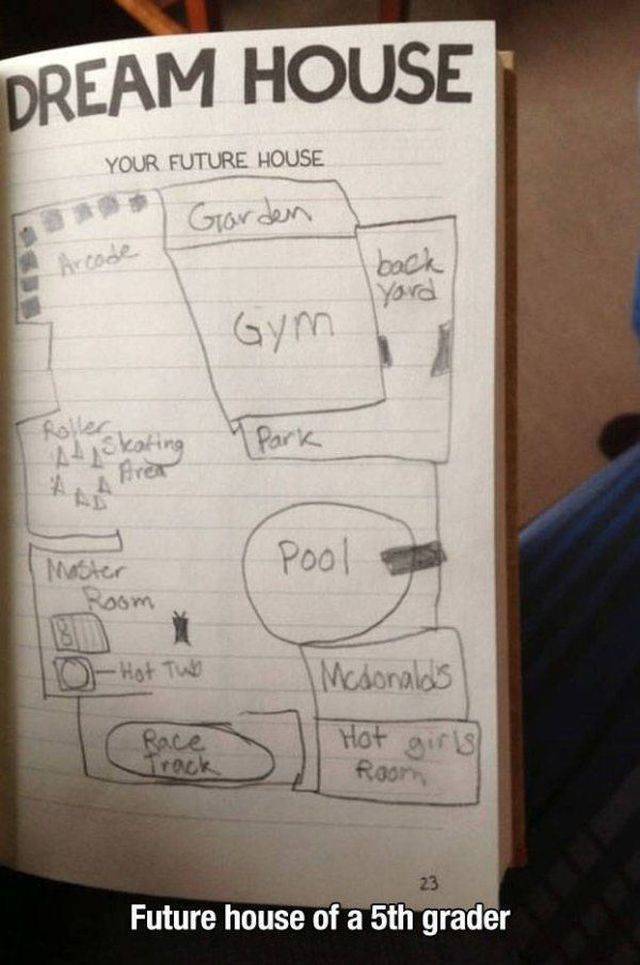 DREAM HOUSE
YOUR FUTURE HOUSE
Garden
Arcade
back
yard
Gym
Roller
Skating
Area
Park
Pool
Master
Room
Hot Tub
Mcdonald's
Race
Track
Hot girls
Room
23
Future house of a 5th grader